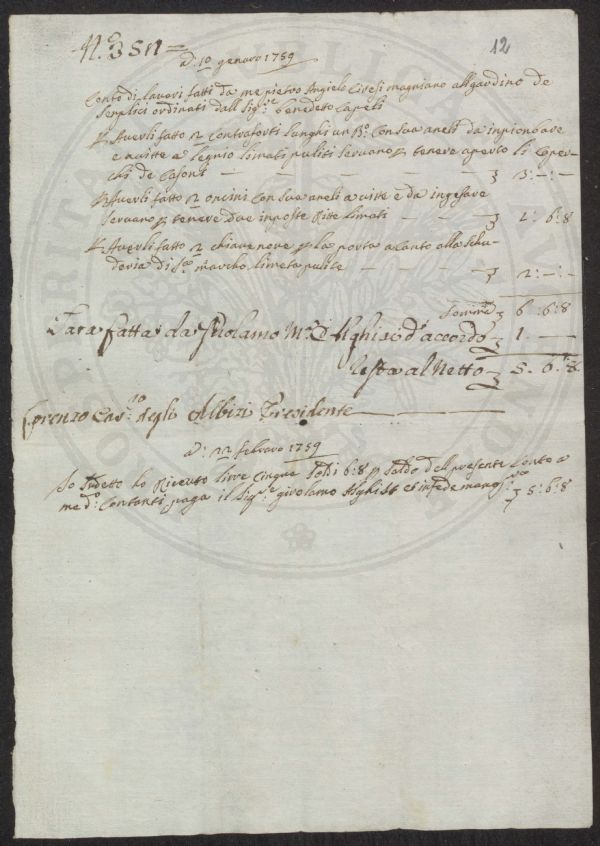 N.° 351
12
A: 10 genaro 1759
Conto di lavori fatti da me pietro Angielo magniano all gardino de
senplici ordinati dall Sig:re benedetto Capeli
P Averli fatto 2 contraforti lunghi un B:o con sua aneli da inpionbare
e a vitte a legnio limati puliti servano p tenere aperto li coper-
chi de casoni — — — 3 2:-:-
P Averli fatto 2 oncini con sua aneli a vitte e da ingesare
servano p tenere due inposte limati — — — 3 1: 6:8
P Averli fatto 2 chiave nove p la porta acanto alla Schu-
deria di S:n marcho limeta pulite — — — 3 2:-:-
Somma 3 6:6:8
Tara fatta da Girolamo M:a Alghisi d'accordo 3 1.—
Resta al Netto 3 5.6:8
Lorenzo degli Albizi Presidente
A: 22 febraro 1759
Io sudetto ho Riceuto lire cinque soldi 6:8 p saldo dell presente Conto a
me d:o Contanti paga il Sig:re girolamo Alghisi et in fede mano 3 5:6:8
PROSPERITAS PUBLICA